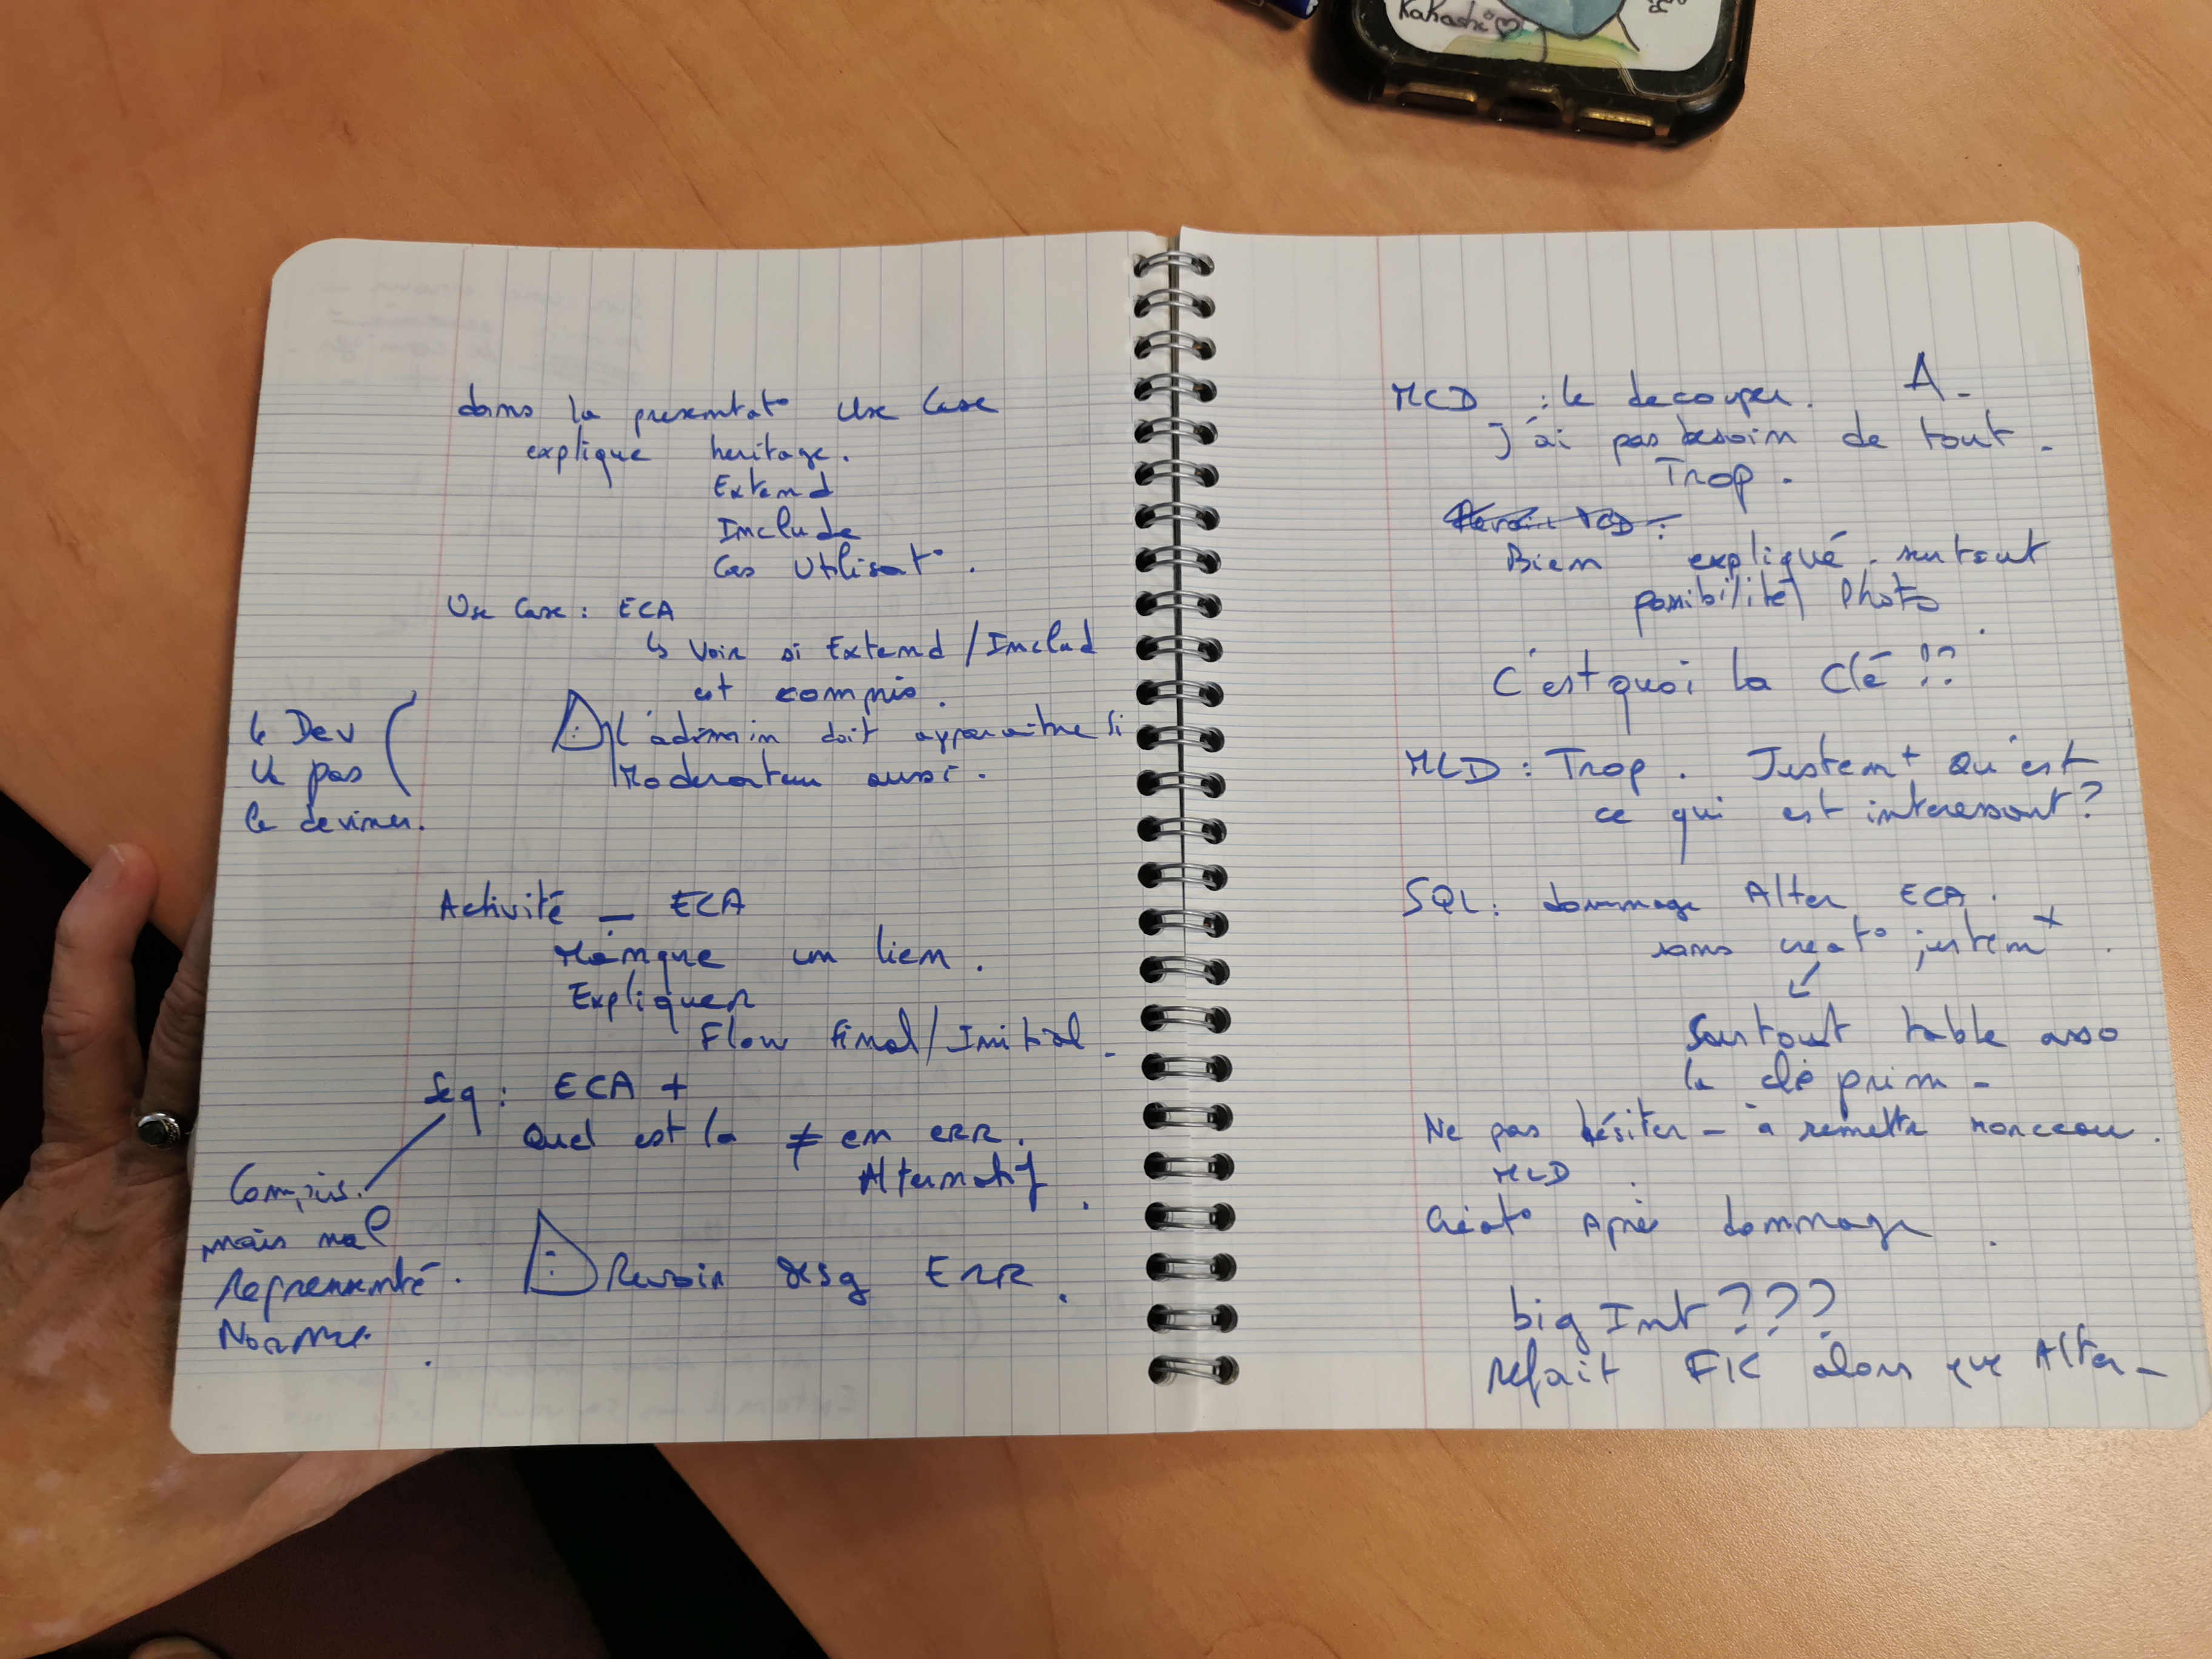 Kakashi
dans la presentat° Use Case
explique heritage.
Extend
Include
Cas Utilisat°.
Use Case : ECA
↳ Voir si Extend / Includ
est compris.
l'admin doit apparaitre si
Moderateur aussi.
le Dev
va pas
le deviner.
Activité - ECA
Manque un lien.
Expliquer
Flow final / Initial.
Seq : ECA +
Quel est la ≠ en ERR.
Alternatif.
Compris.
mais mal
Representé.
Norme.
Revoir Msg ERR.
MCD : le decouper. A-
J'ai pas besoin de tout.
Trop.
Revoir MCD :
Bien expliqué. surtout
possibilité Photo
C'est quoi la Clé !?
MLD : Trop. Justemt Qu'est
ce qui est interessant ?
SQL : dommage Alter ECA.
sans creat° justemt.
Surtout table asso
la clé prim-
Ne pas hésiter - à remettre morceau.
MLD
Créat° Après dommage.
big Int ???
refait FK alors que Alter-